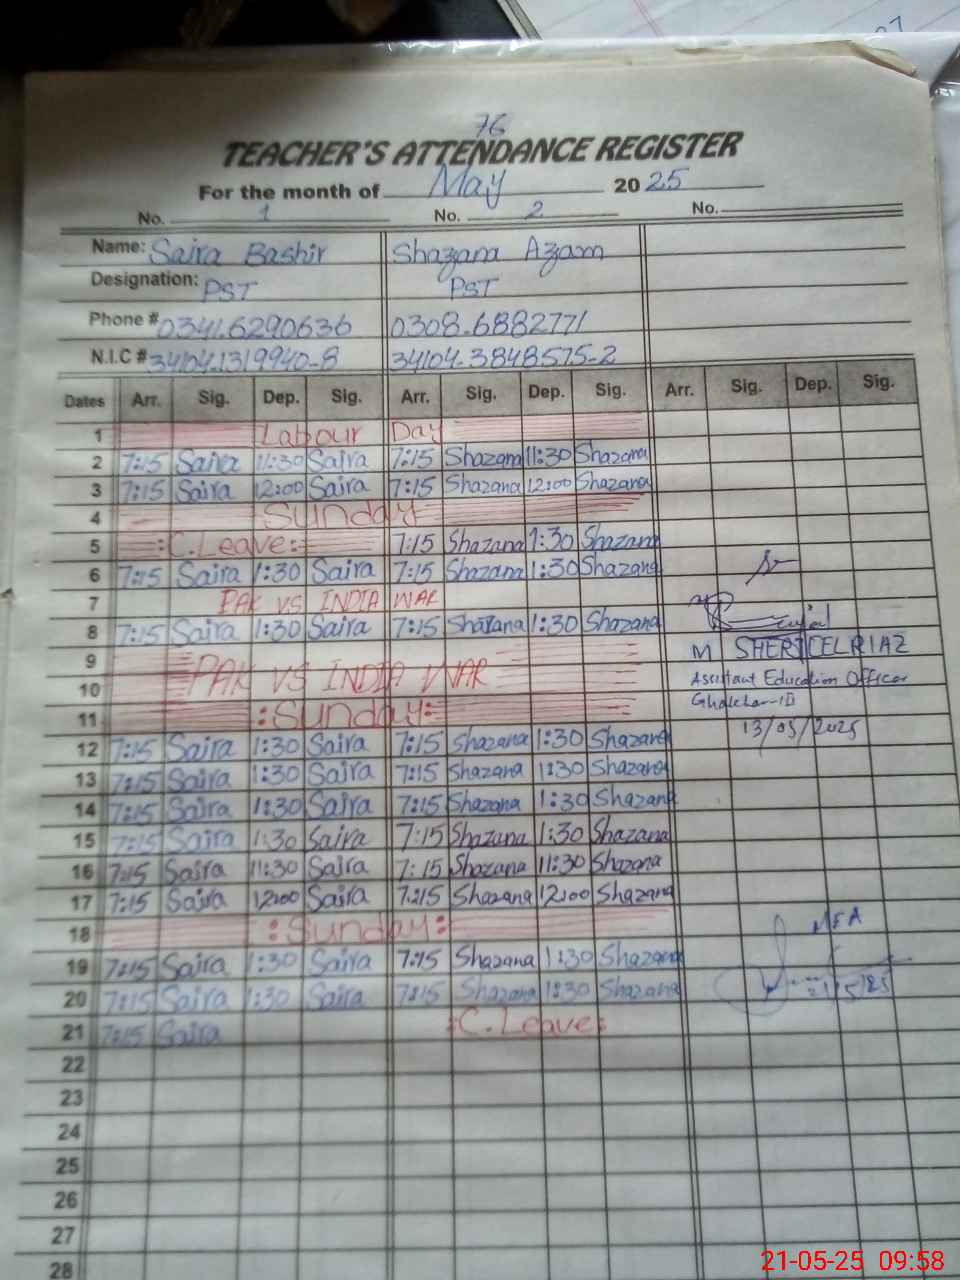 76
TEACHER'S ATTENDANCE REGISTER
For the month of May 2025
No. 1 No. 2 No.
Name: Saira Bashir Shazana Azam
Designation: PST PST
Phone # 0341.6290636 0308.6882771
N.I.C # 34104.1319940-8 34104.3848575-2
Dates Arr. Sig. Dep. Sig. Arr. Sig. Dep. Sig. Arr. Sig. Dep. Sig.
1 Labour Day
2 7:15 Saira 11:30 Saira 7:15 Shazana 11:30 Shazana
3 7:15 Saira 12:00 Saira 7:15 Shazana 12:00 Shazana
4 Sunday
5 :C.Leave: 7:15 Shazana 1:30 Shazana
6 7:15 Saira 1:30 Saira 7:15 Shazana 1:30 Shazana
7 PAK VS INDIA WAR
8 7:15 Saira 1:30 Saira 7:15 Shazana 1:30 Shazana
M SHERJEEL RIAZ
9 PAK VS INDIA WAR
Assistant Education Officer
10
11 :Sunday:
13/05/2025
12 7:15 Saira 1:30 Saira 7:15 Shazana 1:30 Shazana
13 7:15 Saira 1:30 Saira 7:15 Shazana 1:30 Shazana
14 7:15 Saira 1:30 Saira 7:15 Shazana 1:30 Shazana
15 7:15 Saira 1:30 Saira 7:15 Shazana 1:30 Shazana
16 7:15 Saira 11:30 Saira 7:15 Shazana 11:30 Shazana
17 7:15 Saira 12:00 Saira 7:15 Shazana 12:00 Shazana
18 :Sunday:
MEA
19 7:15 Saira 1:30 Saira 7:15 Shazana 1:30 Shazana
20 7:15 Saira 1:30 Saira 7:15 Shazana 1:30 Shazana 21/5/25
21 7:15 Saira :C.Leave:
22
23
24
25
26
27
28
21-05-25 09:58